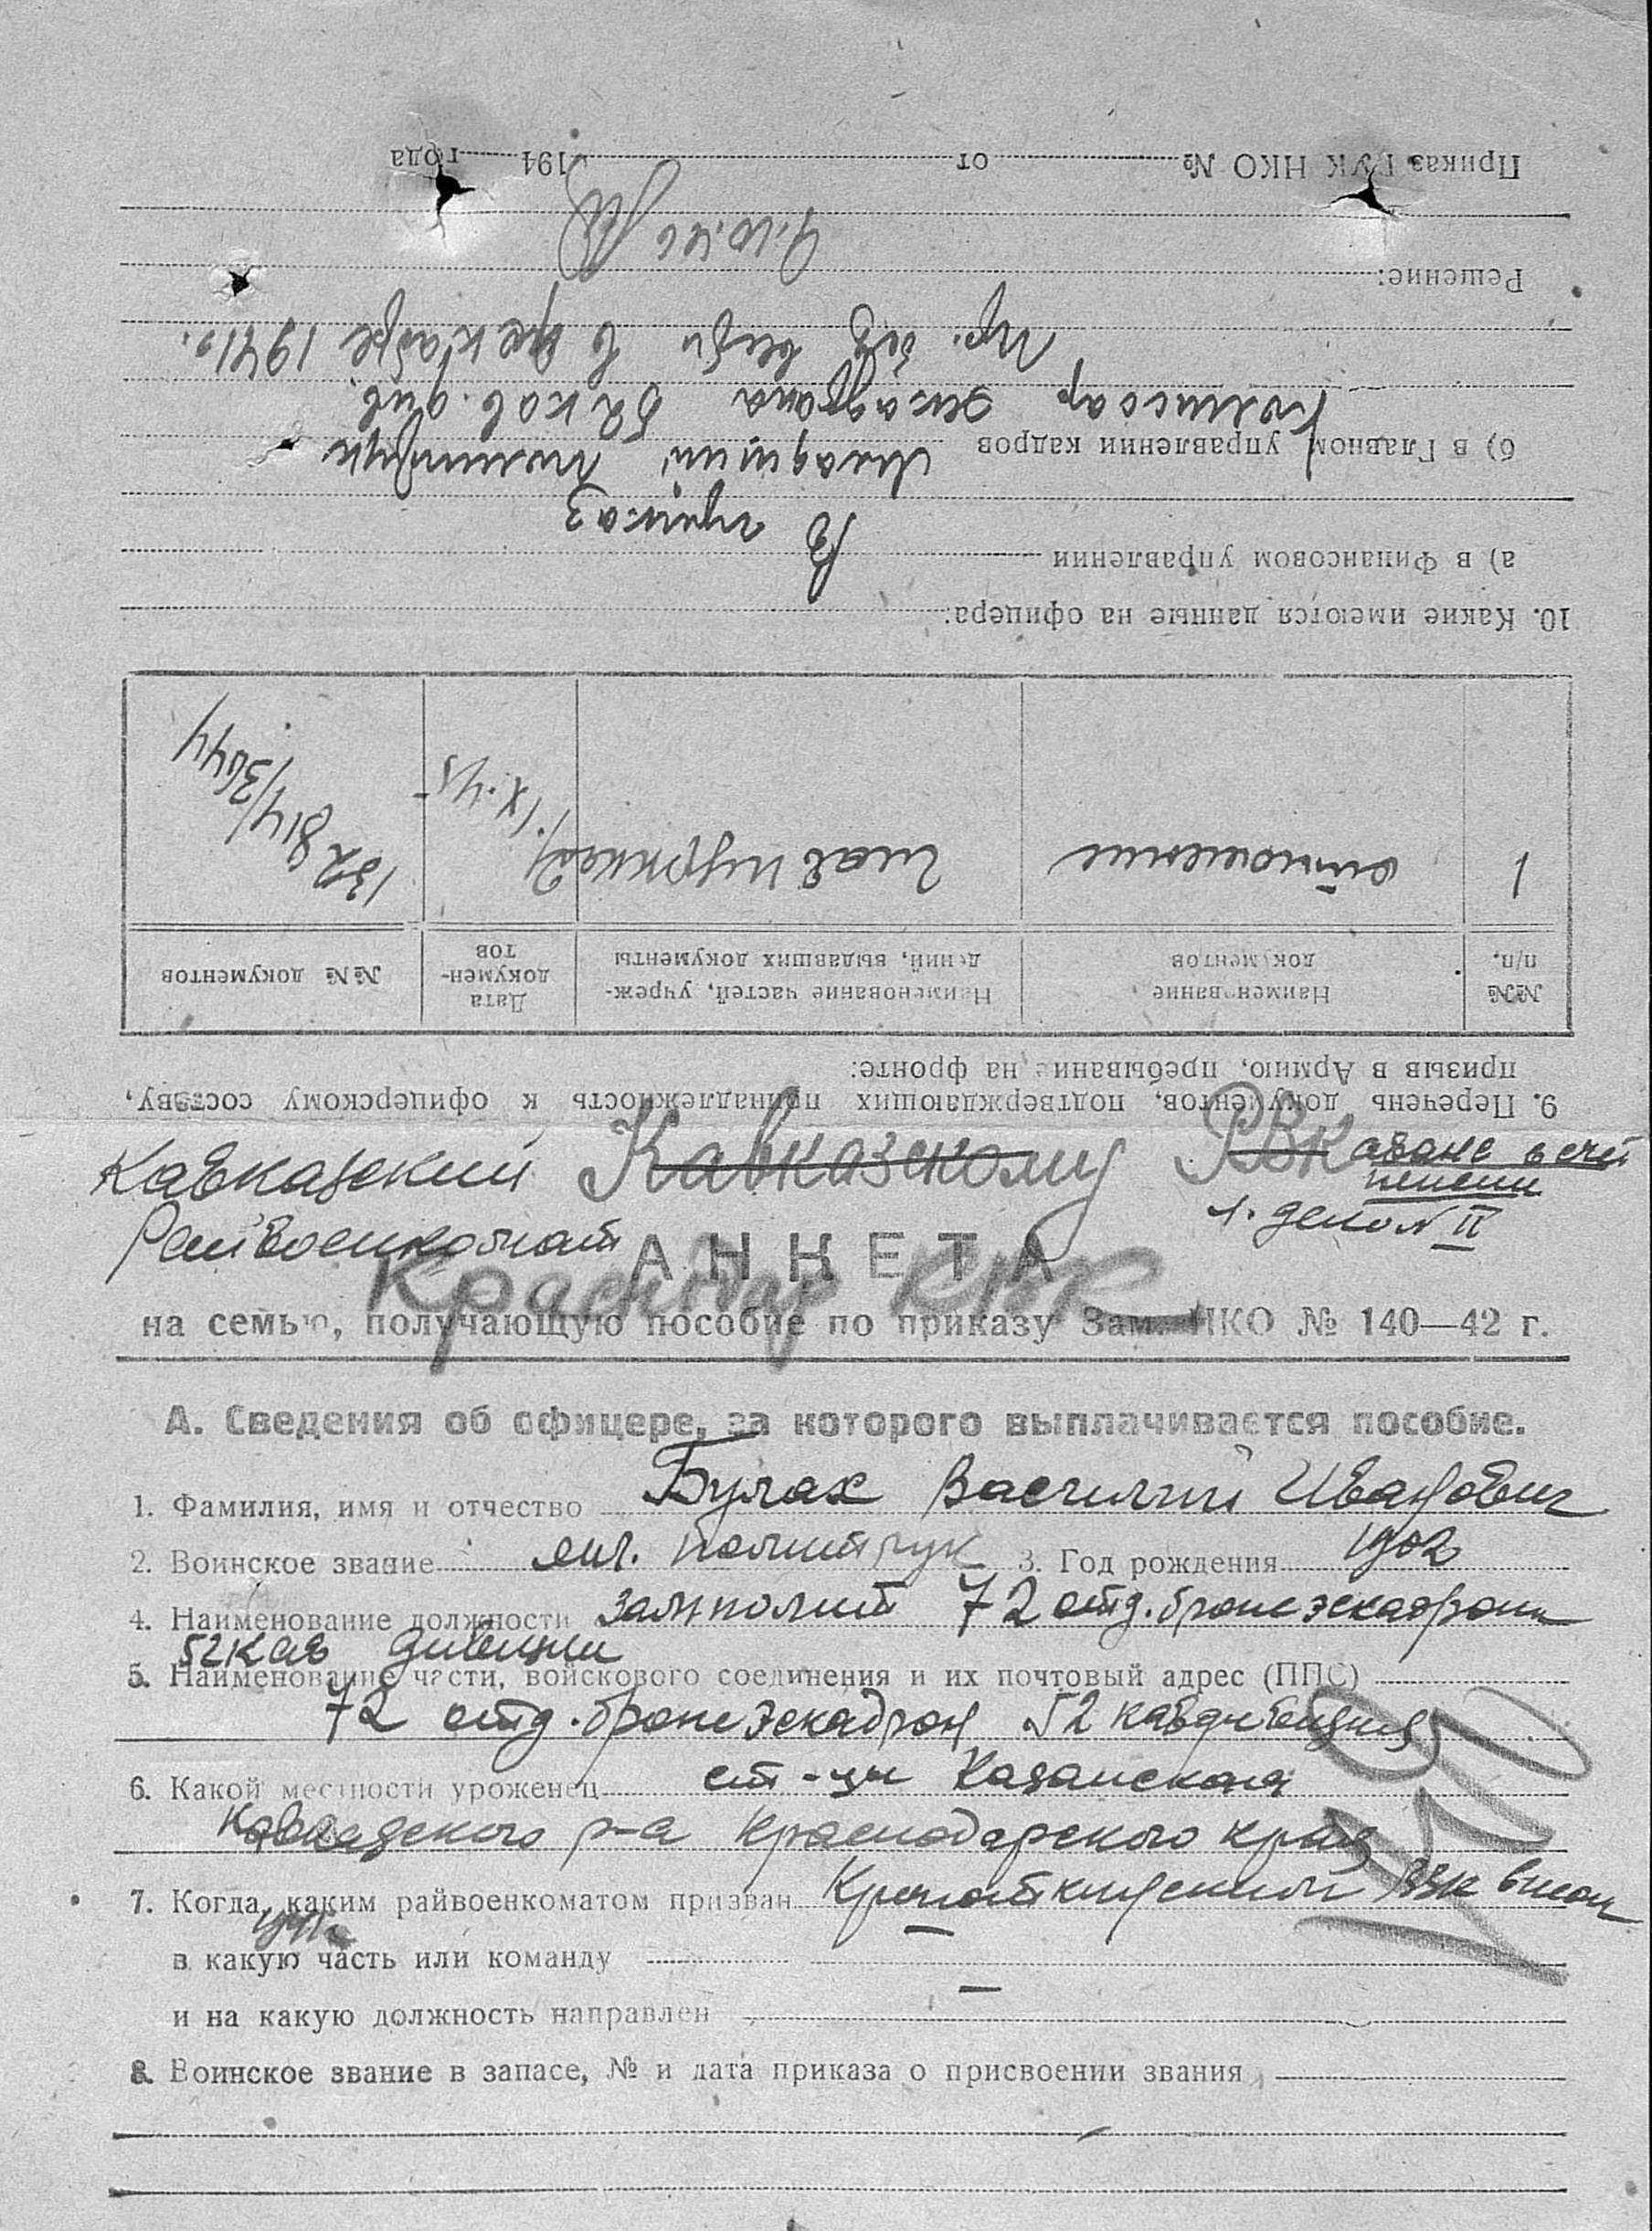 Кавказский Кавказскому РВК аванс в счет
пенсии
Райвоенкомат 1. дело № II
АНКЕТА
Краснодар КВК
на семью, получающую пособие по приказу Зам. НКО № 140—42 г.
А. Сведения об офицере, за которого выплачивается пособие.
1. Фамилия, имя и отчество Булах Василий Иванович
2. Воинское звание мл. политрук 3. Год рождения 1902
4. Наименование должности замполит 72 отд. броне эскадрона
52 кав дивизии
5. Наименование части, войскового соединения и их почтовый адрес (ППС)
72 отд. броне эскадрон 52 кавдивизия
6. Какой местности уроженец ст-цы Казанская
Кавказского р-а Краснодарского края
7. Когда, каким райвоенкоматом призван Кропоткинским РВК
в какую часть или команду —
и на какую должность направлен —
8. Воинское звание в запасе, № и дата приказа о присвоении звания
—
9. Перечень документов, подтверждающих принадлежность к офицерскому составу,
призыв в Армию, пребывание на фронте:
№№ п/п. Наименование документов Наименование частей, учреждений, выдавших документы Дата документов №№ документов
1 отношение 21.IX.45 132814/3644
10. Какие имеются данные на офицера:
а) в Финансовом управлении
В приказ
б) в Главном управлении кадров Младший политрук
Комиссар эскадрона 52 кав. див.
пр. без вести в декабре 1941 г.
Решение:
9.10.46
Приказ ГУК НКО № от 194 года